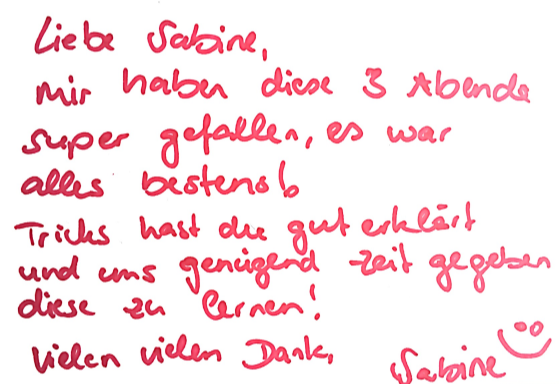 Liebe Sabine,
mir haben diese 3 Abende
super gefallen, es war
alles bestens!
Tricks hast du gut erklärt
und uns genügend Zeit gegeben
diese zu lernen!
Vielen vielen Dank,
Sabine